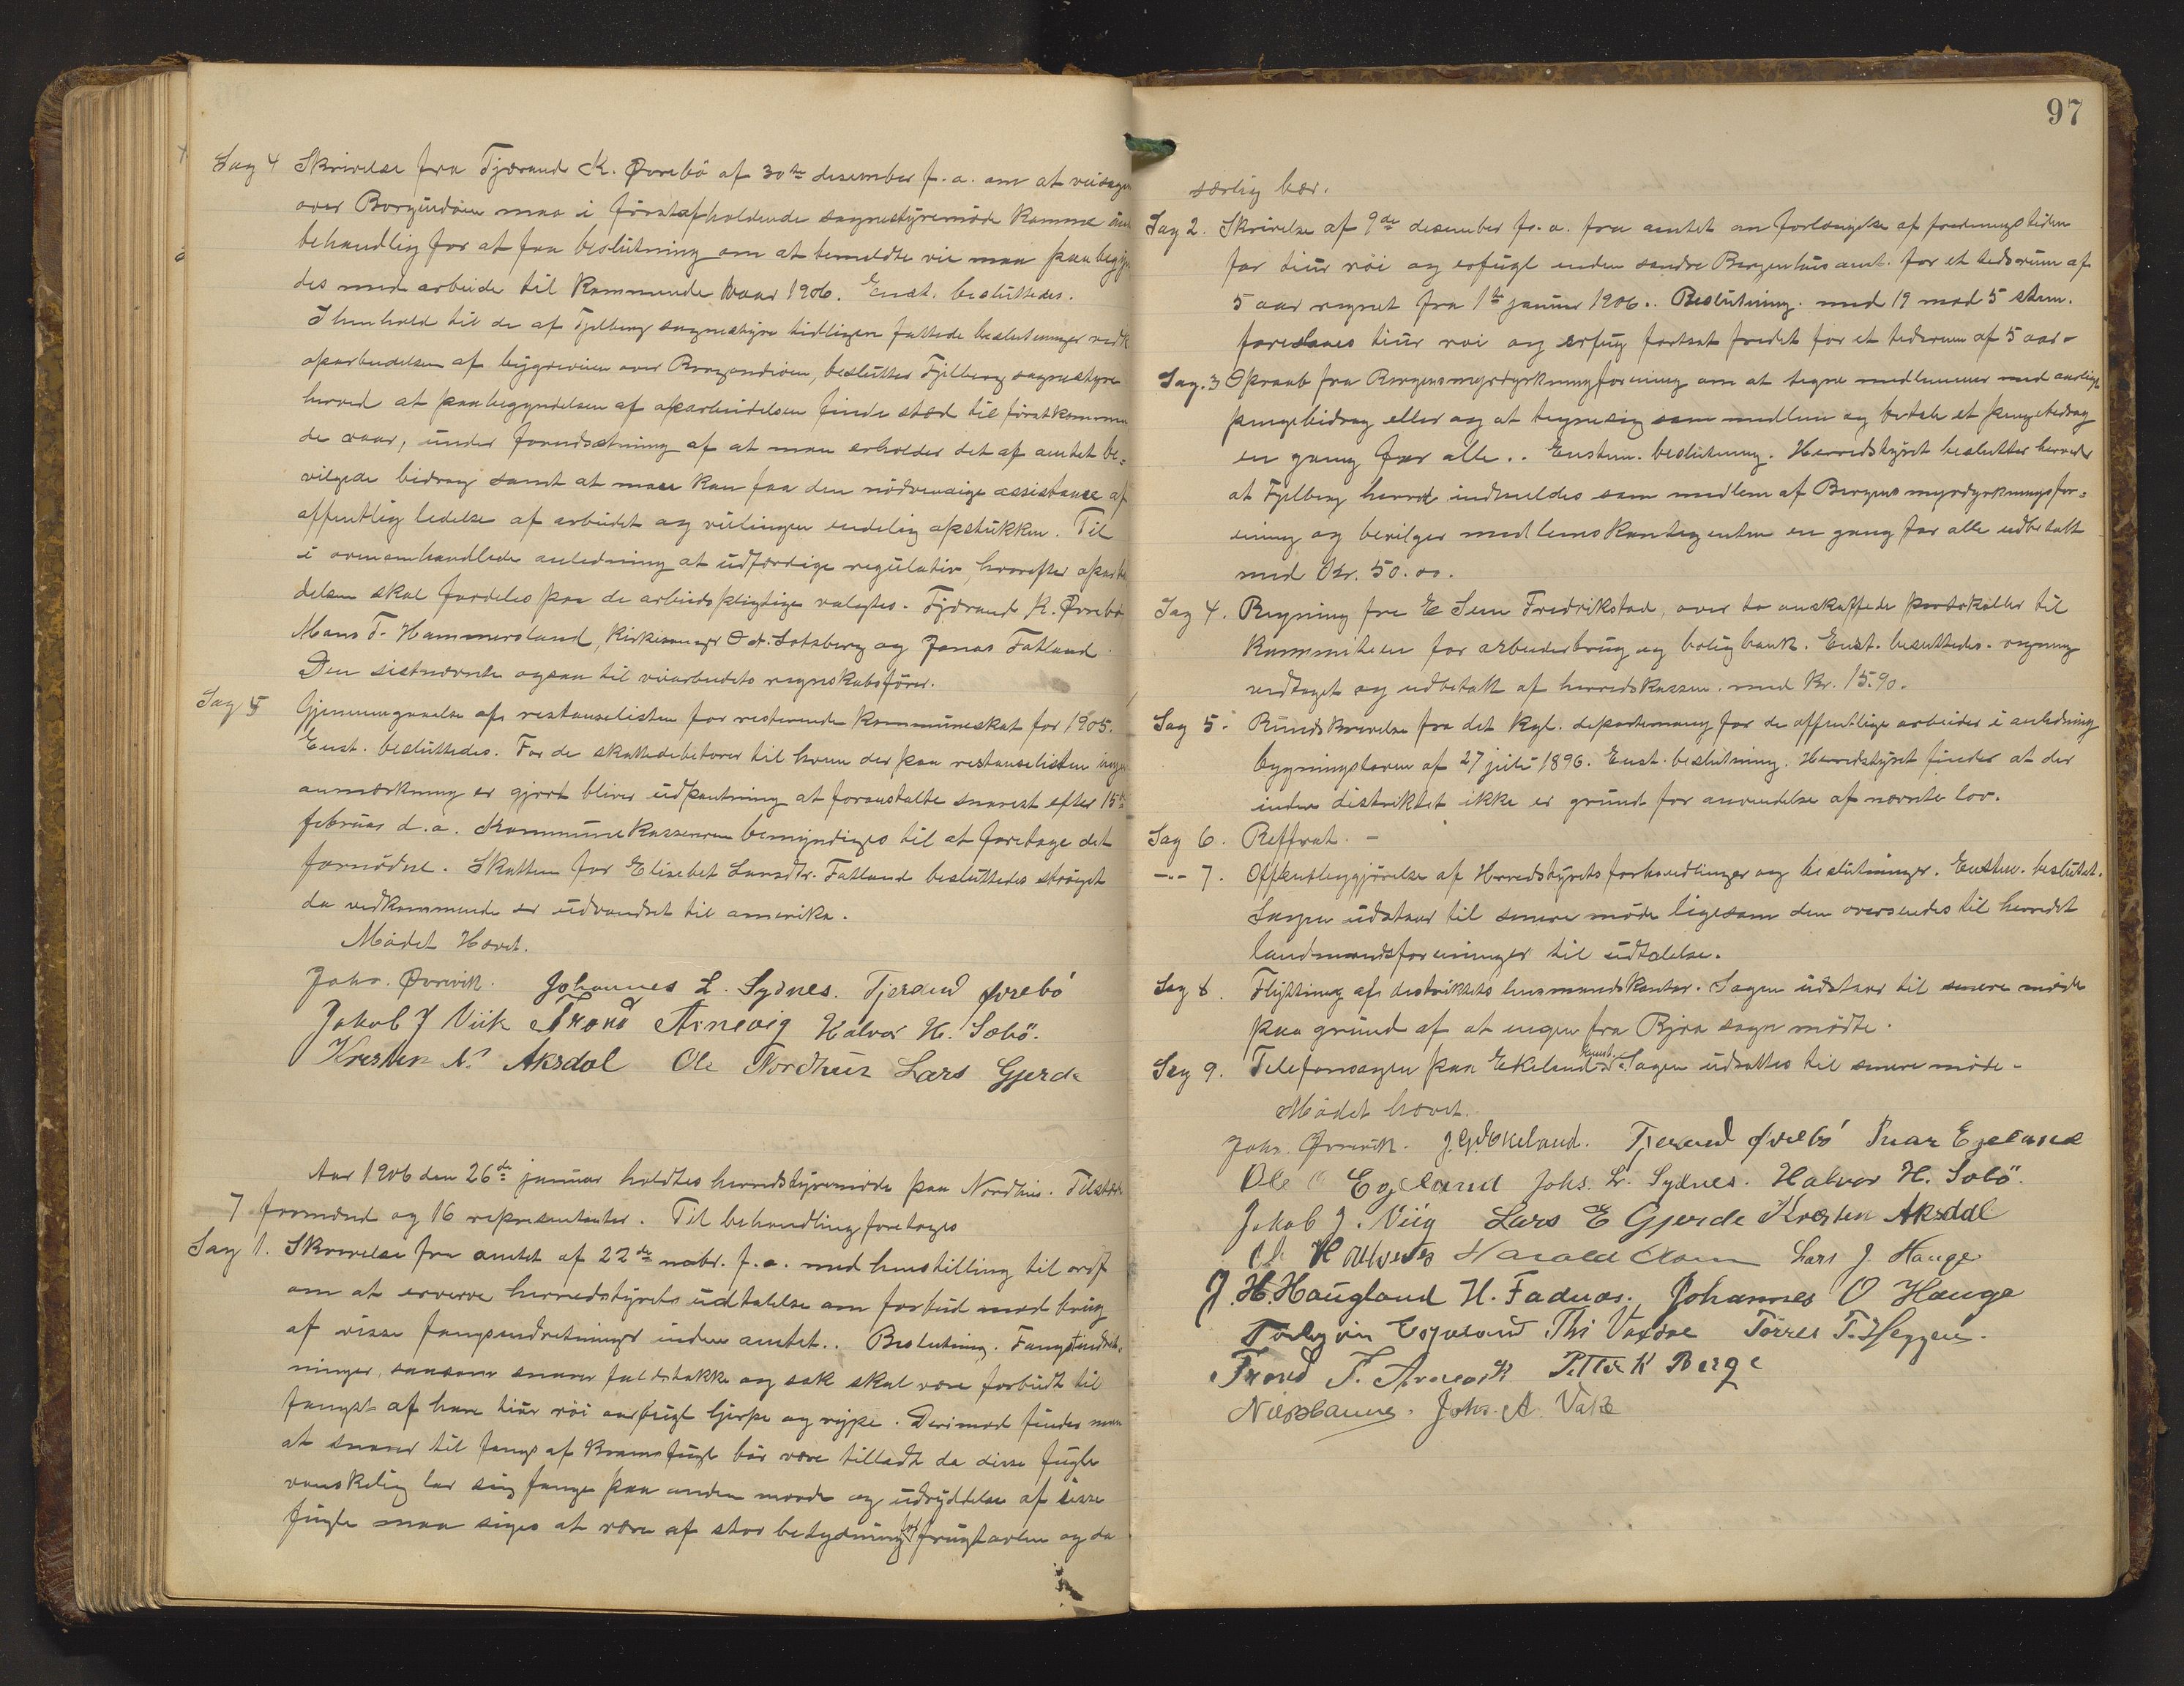 Sag 4 Skrivelse fra Tjærand K. Øvrebö af 30te desember f. a. om at veisagen
over Borgundöen maa i förstafholdende sognestyremöde komme
behandlig for at faa beslutning om at bemeldte vei maa paabegyn
des med arbeide til kommende vaar 1906. Enst. besluttedes.
I henhold til de af Fjelberg sognestyre tidligere fattede beslutninger vedk
oparbeidelsen af bygdeveien over Borgundöen, beslutter Fjelberg sognestyre
herved at paabegyndelsen af oparbeidelsen finde sted til förstkommen
de vaar, under forudsætning af at man erholder det af amtet be=
vilgede bidrag samt at man kan faa den nödvendige assistance af
offentlig ledelse af arbeidet og veilinjen endelig opstukken. Til
i ovenomhandlede anledning at udfærdige regulativ, hvorefter oparbei
delsen skal fordeles paa de arbeidspligtige valgtes. Tjærand K. Øvrebö
Mons T. Hammersland, Kirkesanger O. A. Lotsberg og Jonas Fatland.
Den sistnævnte ogsaa til veiarbeidets regnskabsförer.
Sag 5 Gjennemgaaelse af restanselisten for resterende Kommuneskat for 1905.
Enst. besluttedes. For de skattedebitorer til hvem der paa restanselisten ingen
anmærkning er gjort bliver udpantning at foranstalte snarest efter 15de
februar d. a. Kommunekassereren bemyndiges til at foretage det
fornödne. Skatten for Elisebet Larsdtr. Fatland besluttedes ströget
da vedkommende er udvandret til amerika.
Mödet Hævet.
Johs. Øvrevik. Johannes L. Sydnes. Tjerand Øvrebó
Jakob J Viik Trond Arnevig Halvor H. Sæbö.
Kresten N. Aksdal Ole Nordhuus Lars Gjerde
Aar 1906 den 26de januar holdtes herredstyremöde paa Nordhus. Tilstede
7 formænd og 16 representanter. Til behandling foretoges
Sag 1. Skrivelse fra amtet af 22de novbr. f. a. med henstilling til ordf
om at erverve herredstyrets udtalelse om forbud mod brug
af visse fangsindretninger inden amtet.. Beslutning. Fangstindret=
ninger, saasom snarer faldstokke og saks skal være forbudt til
fangst af hare tiur röi aarfugl hjerpe og rype. Derimod finder man
at snarer til fangs af Kramsfugl bör være tilladt da disse fugle
vanskelig lar sig fange paa anden maade og udryddelse af disse
fugle maa siges at være af stor betydning for frugtavlen og da
97
særlig bær.
Sag 2. Skrivelse af 9de desember f. a. fra amtet om forlængelse af fredningstiden
for tiur röi og orfugl inden söndre Bergenhus amt. for et tidsrum af
5 aar regnet fra 1te januar 1906.. Beslutning. med 19 mod 5 stem.
foreslaaes tiur röi og orfugl fortsat fredet for et tidsrum af 5 aar.
Sag. 3 Opraab fra Bergens myrdyrkningforening om at tegne medlemmer med aarligt
pengebidrag eller og at tegne sig som medlem og betale et pengebidrag
en gang for alle.. Enstem. beslutning. Herredstyret beslutter herved
at Fjelberg herred indmeldes som medlem af Bergens myrdyrkningsfor=
ening og bevilger medlemskontingenten en gang for alle udbetalt
med Kr. 50.00.
Sag 4. Regning fra E Sem Fredrikstad, over to anskaffede protokoller til
Kommiteen for arbeiderbrug og boligbank. Enst. besluttedes. regning
vedtaget og udbetalt af herredskassen. med Kr. 15.90.
Sag 5. Rundskrivelse fra det Kgl. departement for de offentlige arbeider i anledning
bygningsloven af 27 juli 1896. Enst. beslutning. Herredstyret finder at der
inden distriktet ikke er grund for anvendelse af nævnte lov.
Sag 6. Refferat. -
-"- 7. Offentliggjörelse af Herredstyrets forhandlinger og beslutninger. Enstem. beslutet.
Sagen udstaar til senere möde ligesom den oversendes til herredet
landmandsforeninger til udtalelse.
Sag 8. Flytning af distriktets lensmandskontor. Sagen udstaar til senere möde
paa grund af at ingen fra Bjoa sogn mödte.
Sag 9. Telefonsagen paa Ekeland Sagen udsættes til senere möde.
Mödet hævet.
Johs. Øvrevik. J. G. Økeland. Tjerand Øvrebó Ivar Egeland
Ole O Egeland Johs. L. Sydnes. Halvor H. Sæbö.
Jakob J. Viig Lars E Gjerde Kresten Aksdal
Harald Lars J. Hauge
J. H. Haugland H. Fadnæs. Johannes O Hauge
Egeland Ths Vaxdal Torres T. Heggen.
Trond T. Arnevik Petter K Berge
Johs. A. Vake